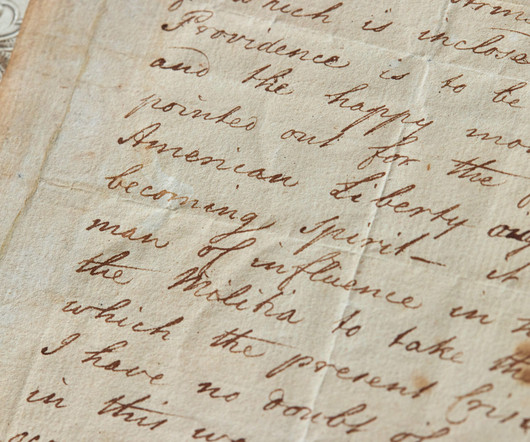 which is inclose
Providence is to be
and the happy mo
pointed out for the
American Liberty oug
becoming spirit — it
man of influence in
the Militia to take th
which the present Cris
I have no doubt of
in this w